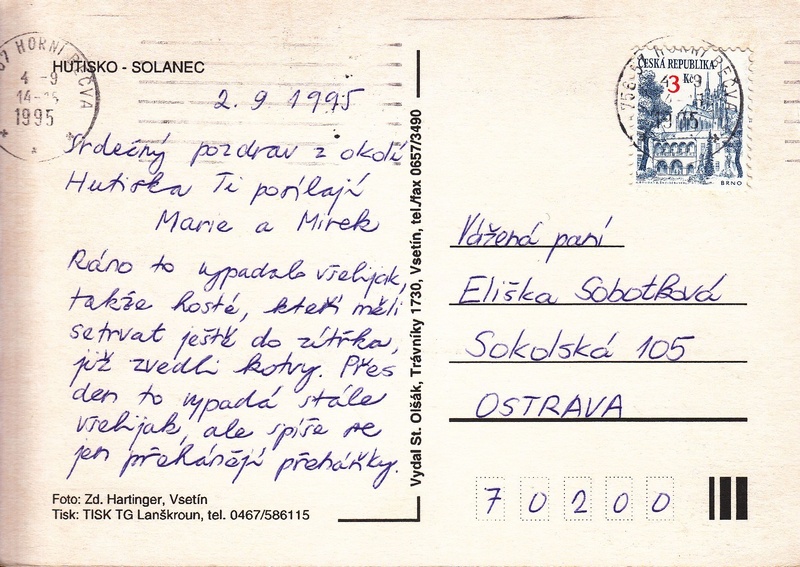 HUTISKO - SOLANEC
2. 9 1995
Srdečný pozdrav z okolí
Hutiska Ti posílají
Marie a Mirek
Ráno to vypadalo všelijak,
takže hosté, kteří měli
setrvat ještě do zítřka,
již zvedli kotvy. Přes
den to vypadá stále
všelijak, ale spíše se
jen přehánějí přeháňky.
Foto: Zd. Hartinger, Vsetín
Tisk: TISK TG Lanškroun, tel. 0467/586115
Vydal St. Olšák, Trávníky 1730, Vsetín, tel./fax 0657/3490
ČESKÁ REPUBLIKA
3 Kč
BRNO
HORNÍ BEČVA
4 -9
1995
756 57 HORNÍ BEČVA
Vážená paní
Eliška Sobotková
Sokolská 105
OSTRAVA
7 0 2 0 0